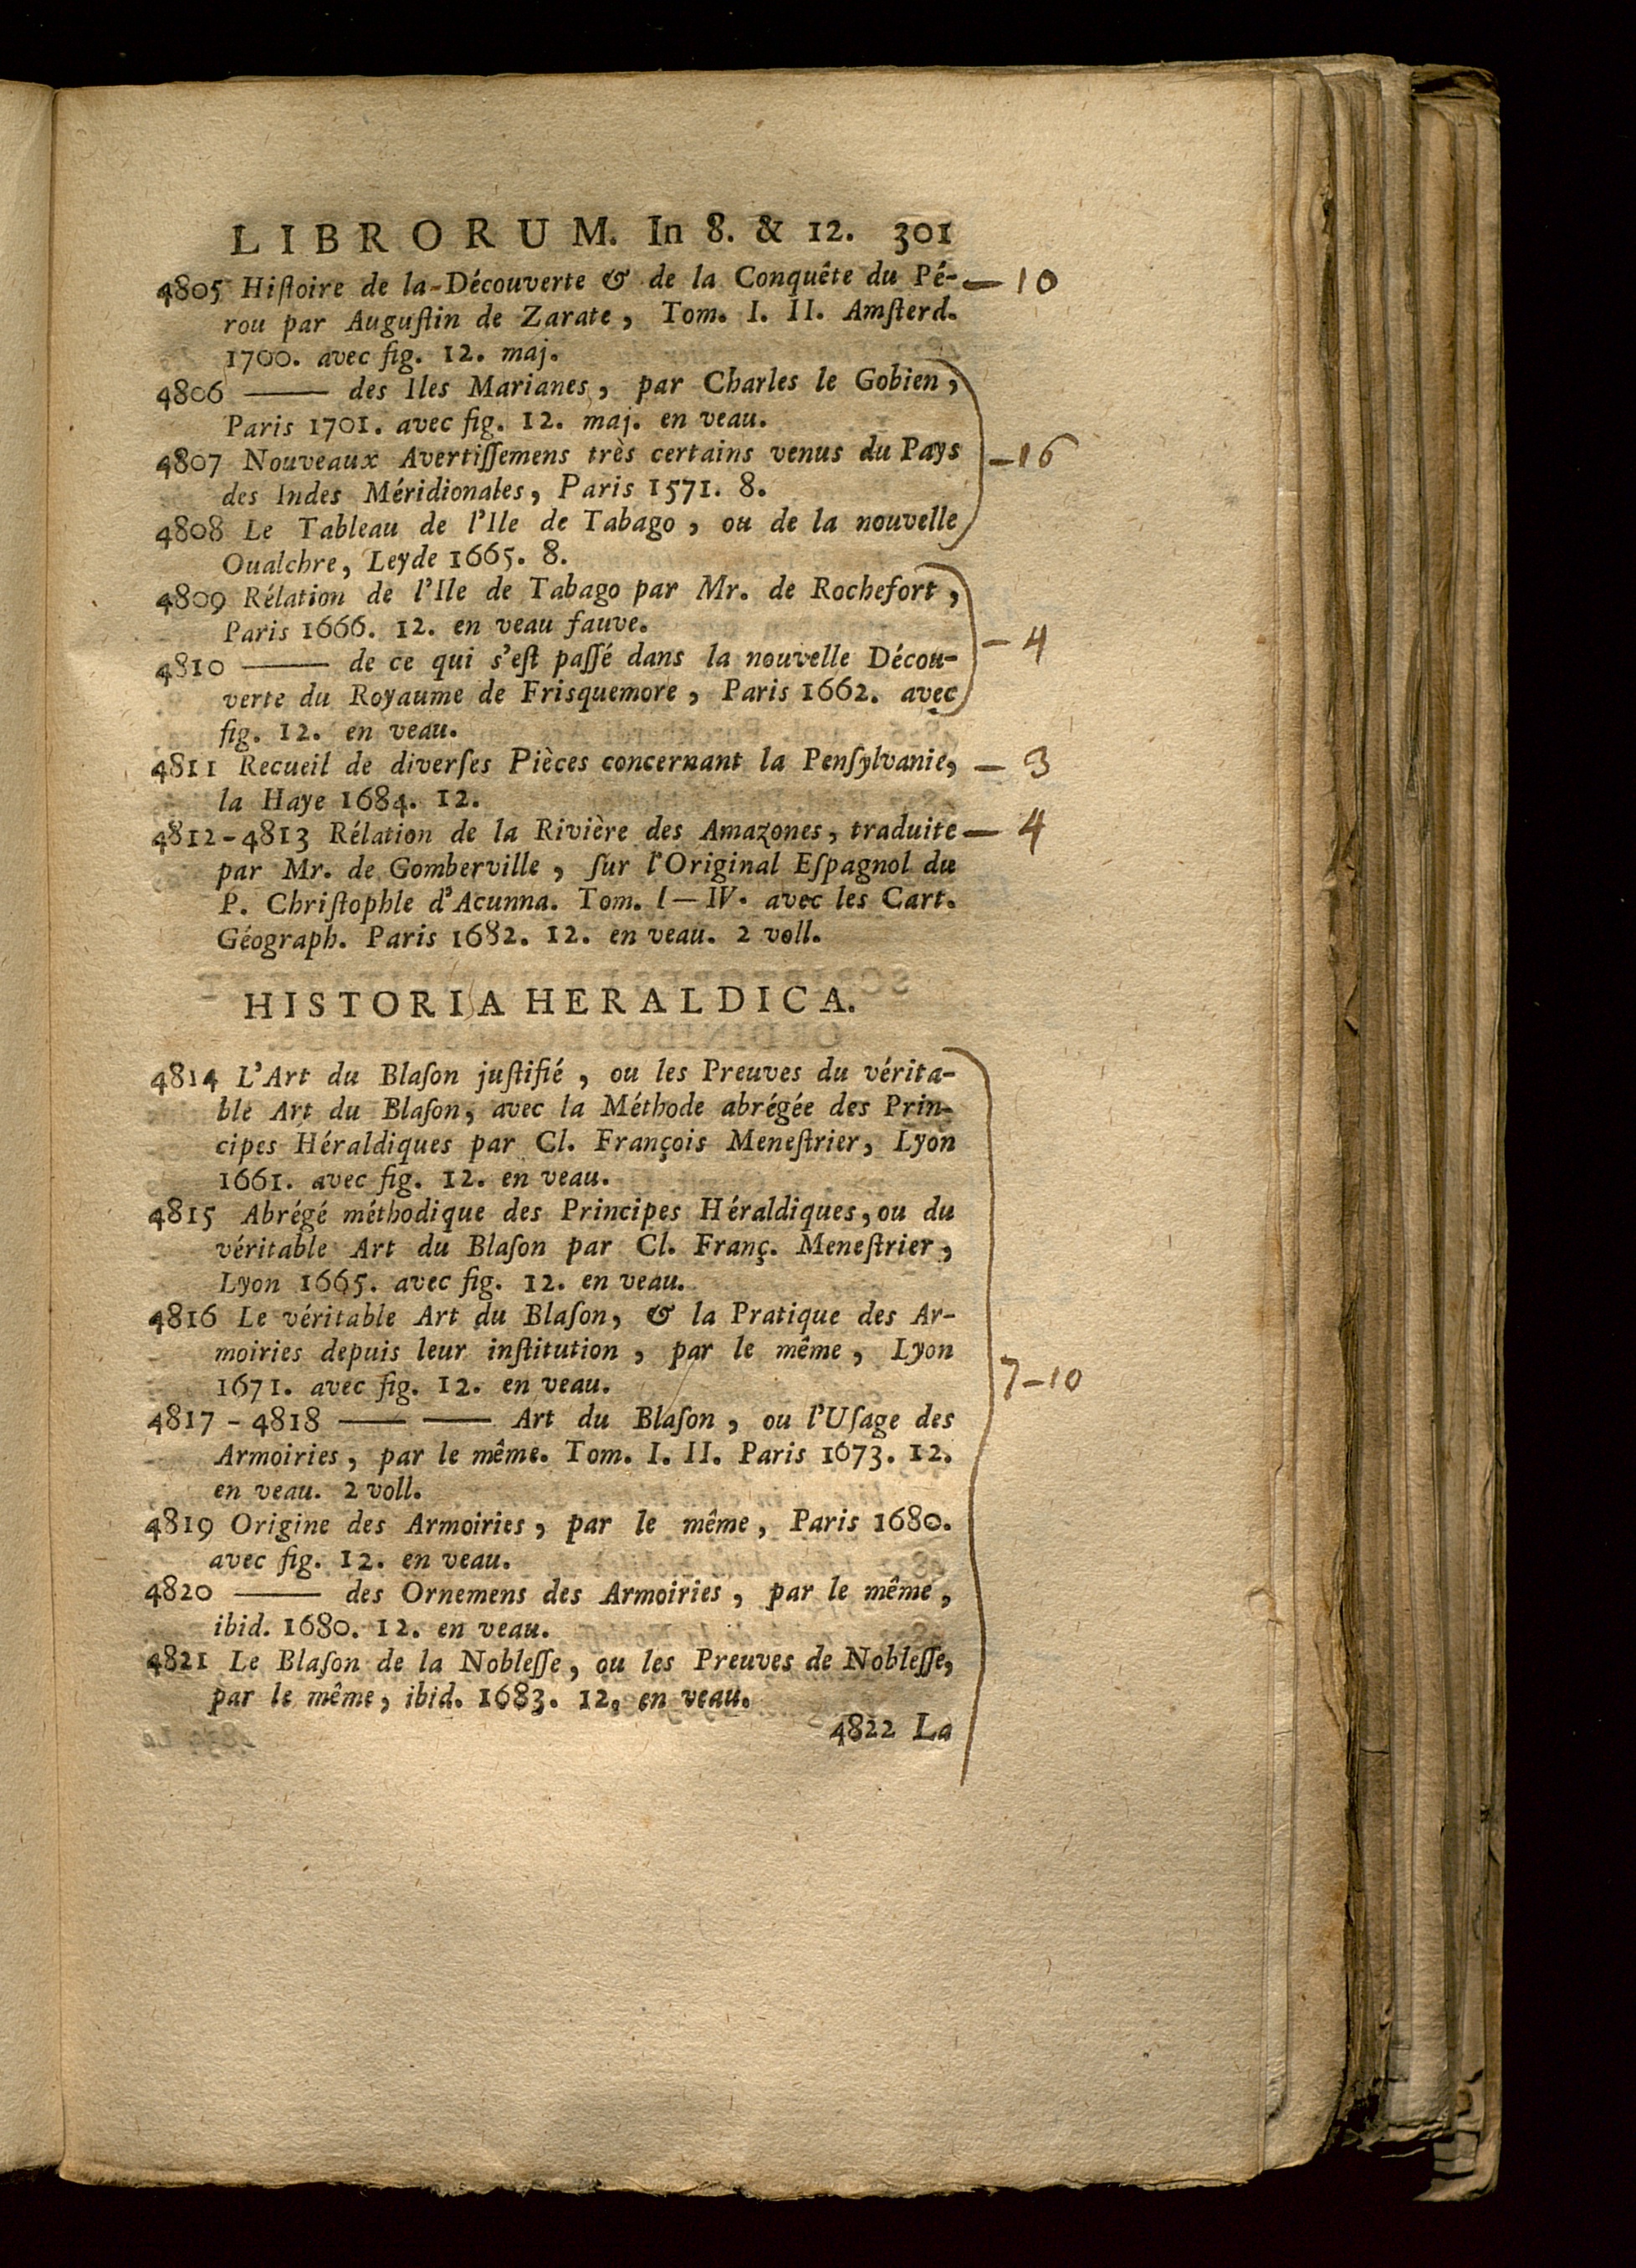 LIBRORUM. In 8. & 12. 301
4805 Hiſtoire de la-Découverte & de la Conquête du Pé- — 10
rou par Auguſtin de Zarate, Tom. I. II. Amſterd.
1700. avec fig. 12. maj.
4806 —— des Iles Marianes, par Charles le Gobien,
Paris 1701. avec fig. 12. maj. en veau.
4807 Nouveaux Avertiſſemens très certains venus du Pays — 16
des Indes Méridionales, Paris 1571. 8.
4808 Le Tableau de l'Ile de Tabago, ou de la nouvelle
Oualchre, Leyde 1665. 8.
4809 Rélation de l'Ile de Tabago par Mr. de Rochefort,
Paris 1666. 12. en veau fauve.
— 4
4810 —— de ce qui s'eſt paſſé dans la nouvelle Décou-
verte du Royaume de Frisquemore, Paris 1662. avec
fig. 12. en veau.
4811 Recueil de diverſes Pièces concernant la Penſylvanie, — 3
la Haye 1684. 12.
4812-4813 Rélation de la Rivière des Amazones, traduite — 4
par Mr. de Gomberville, ſur l'Original Eſpagnol du
P. Chriſtophle d'Acunna. Tom. I—IV. avec les Cart.
Géograph. Paris 1682. 12. en veau. 2 voll.
HISTORIA HERALDICA.
4814 L'Art du Blaſon juſtifié, ou les Preuves du vérita-
ble Art du Blaſon, avec la Méthode abrégée des Prin-
cipes Héraldiques par Cl. François Meneſtrier, Lyon
1661. avec fig. 12. en veau.
4815 Abrégé méthodique des Principes Héraldiques, ou du
véritable Art du Blaſon par Cl. Franç. Meneſtrier,
Lyon 1665. avec fig. 12. en veau.
4816 Le véritable Art du Blaſon, & la Pratique des Ar-
moiries depuis leur inſtitution, par le même, Lyon
1671. avec fig. 12. en veau. 7-10
4817 - 4818 —— —— Art du Blaſon, ou l'Uſage des
Armoiries, par le même. Tom. I. II. Paris 1673. 12.
en veau. 2 voll.
4819 Origine des Armoiries, par le même, Paris 1680.
avec fig. 12. en veau.
4820 —— des Ornemens des Armoiries, par le même,
ibid. 1680. 12. en veau.
4821 Le Blaſon de la Nobleſſe, ou les Preuves de Nobleſſe,
par le même, ibid. 1683. 12. en veau.
4822 La